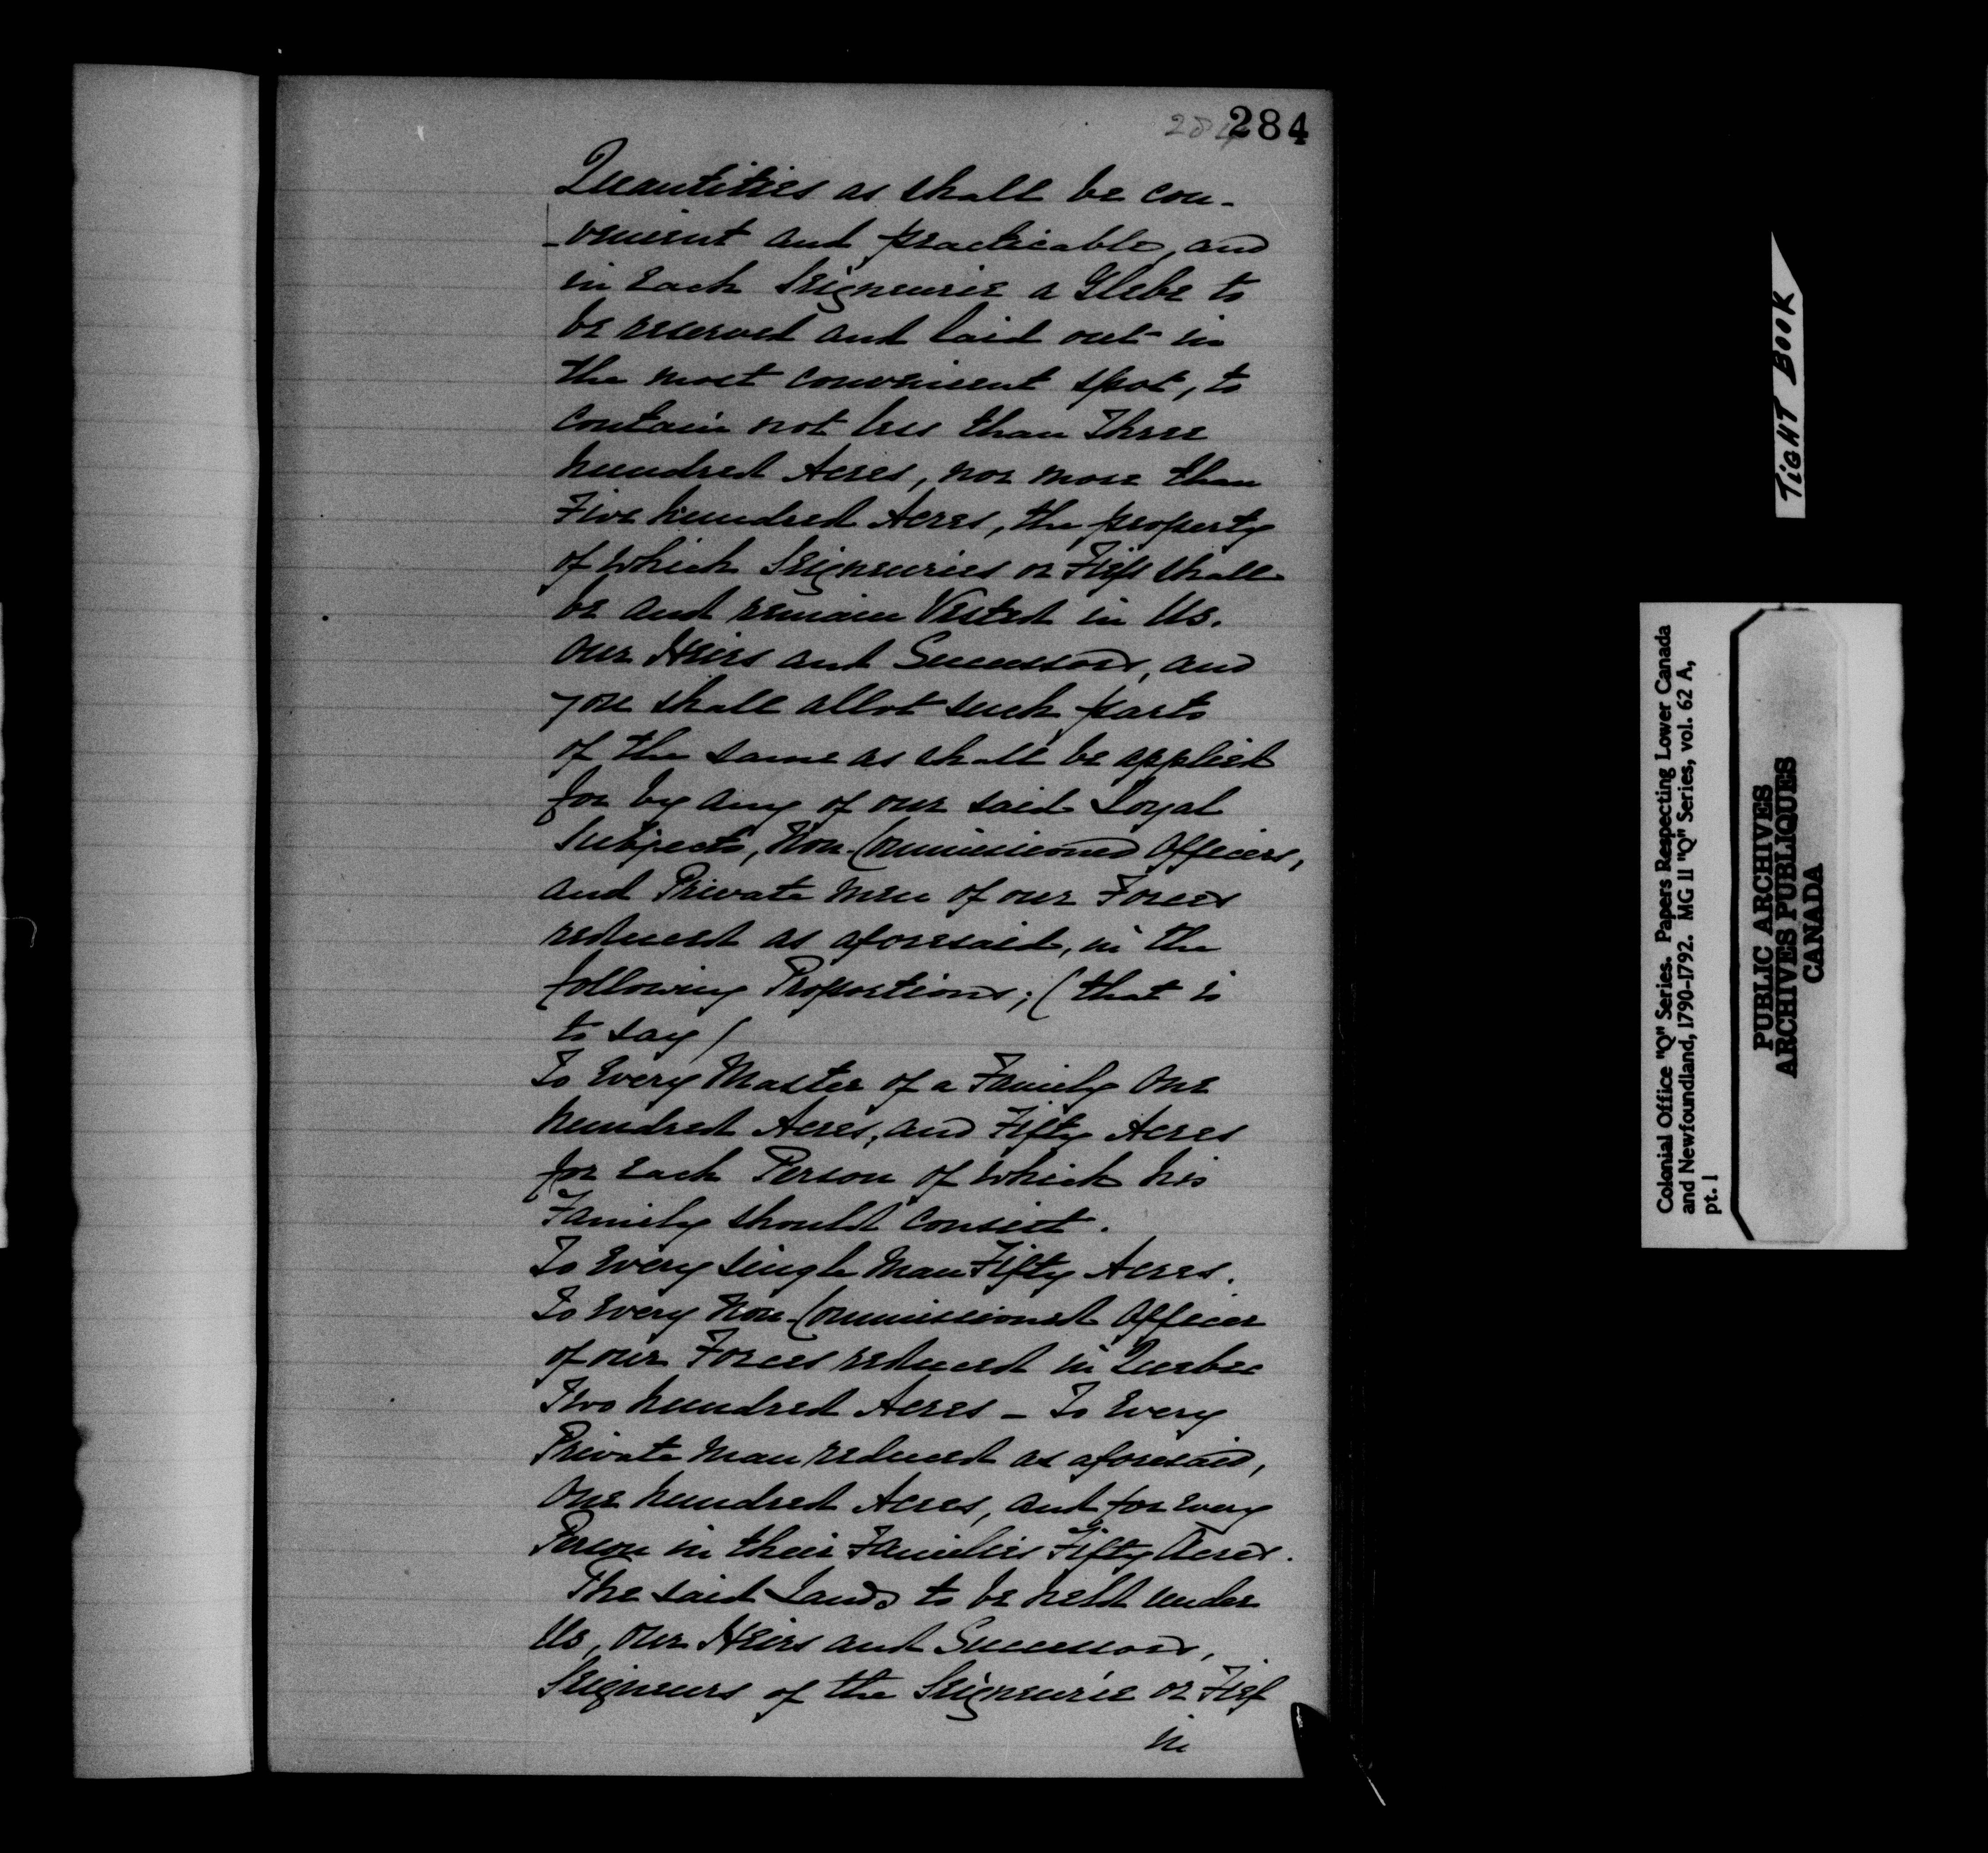 284
284
Quantities as shall be con-
-venient and practicable, and
in Each Seigneurie a Glebe to
be reserved and laid out in
the most convenient spot, to
contain not less than Three
hundred Acres, nor more than
Five hundred Acres, the property
of which Seigneuries or Fiefs shall
be and remain Vested in Us.
our Heirs and Successors, and
you shall allot such parts
of the same as shall be applied
for by any of our said Loyal
Subjects, Non-Commissioned Officers,
and Private Men of our Forces
reduced as aforesaid, in the
following Proportions; (that is
to say)
To Every Master of a Family One
hundred Acres, and Fifty Acres
for Each Person of which his
Family should consist.
To Every single Man Fifty Acres.
To Every Non-Commissioned Officer
of our Forces reduced in Quebec
Two hundred Acres - To Every
Private Man reduced as aforesaid,
One hundred Acres, and for Every
Person in their Families Fifty Acres.
The said Lands to be held under
Us, our Heirs and Successors,
Seigneurs of the Seigneurie or Fief
in
TIGHT BOOK
Colonial Office "Q" Series. Papers Respecting Lower Canada
and Newfoundland, 1790-1792. MG 11 "Q" Series, vol. 62 A,
pt. 1
PUBLIC ARCHIVES
ARCHIVES PUBLIQUES
CANADA